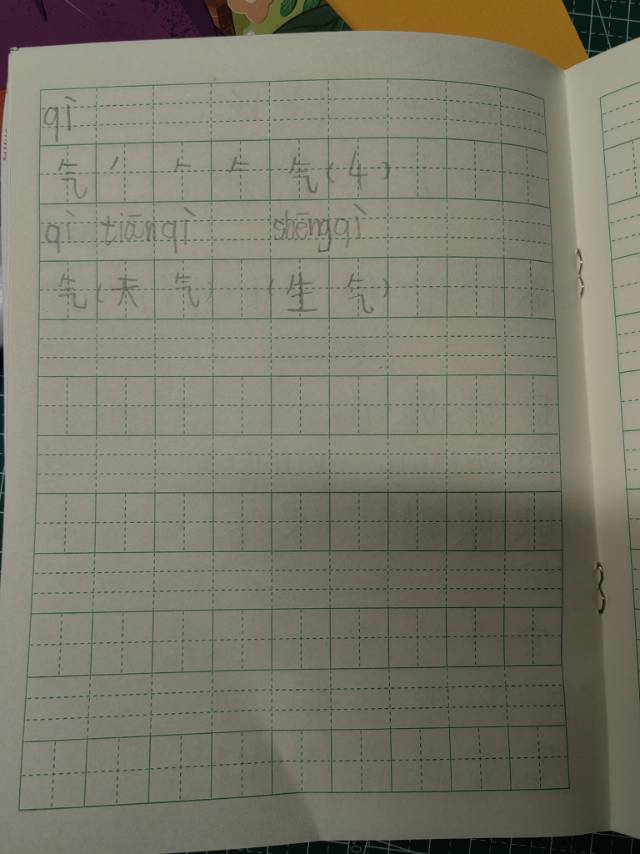 qì
气 丿 𠂉 气 (4)
qì tiān qì shēng qì
气(天 气) (生 气)